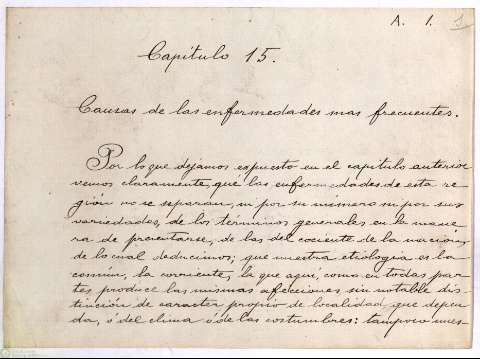 A. 1. 1
Capitulo 15.
Causas de las enfermedades mas frecuentes.
Por lo que dejamos expuesto en el capitulo anterior
vemos claramente, que las enfermedades de esta re-
gión no se separan, ni por su número ni por sus
variedades, de los términos generales en la mane-
ra de presentarse, de las del cociente de la nación,
de lo cual deducimos; que nuestra etiologia es la
común, la corriente, la que aquí, como en todas par-
tes produce las mismas afecciones sin notable dis-
tinción de caracter propio de localidad que depen-
da, ó del clima ó de las costumbres: tampoco nues-